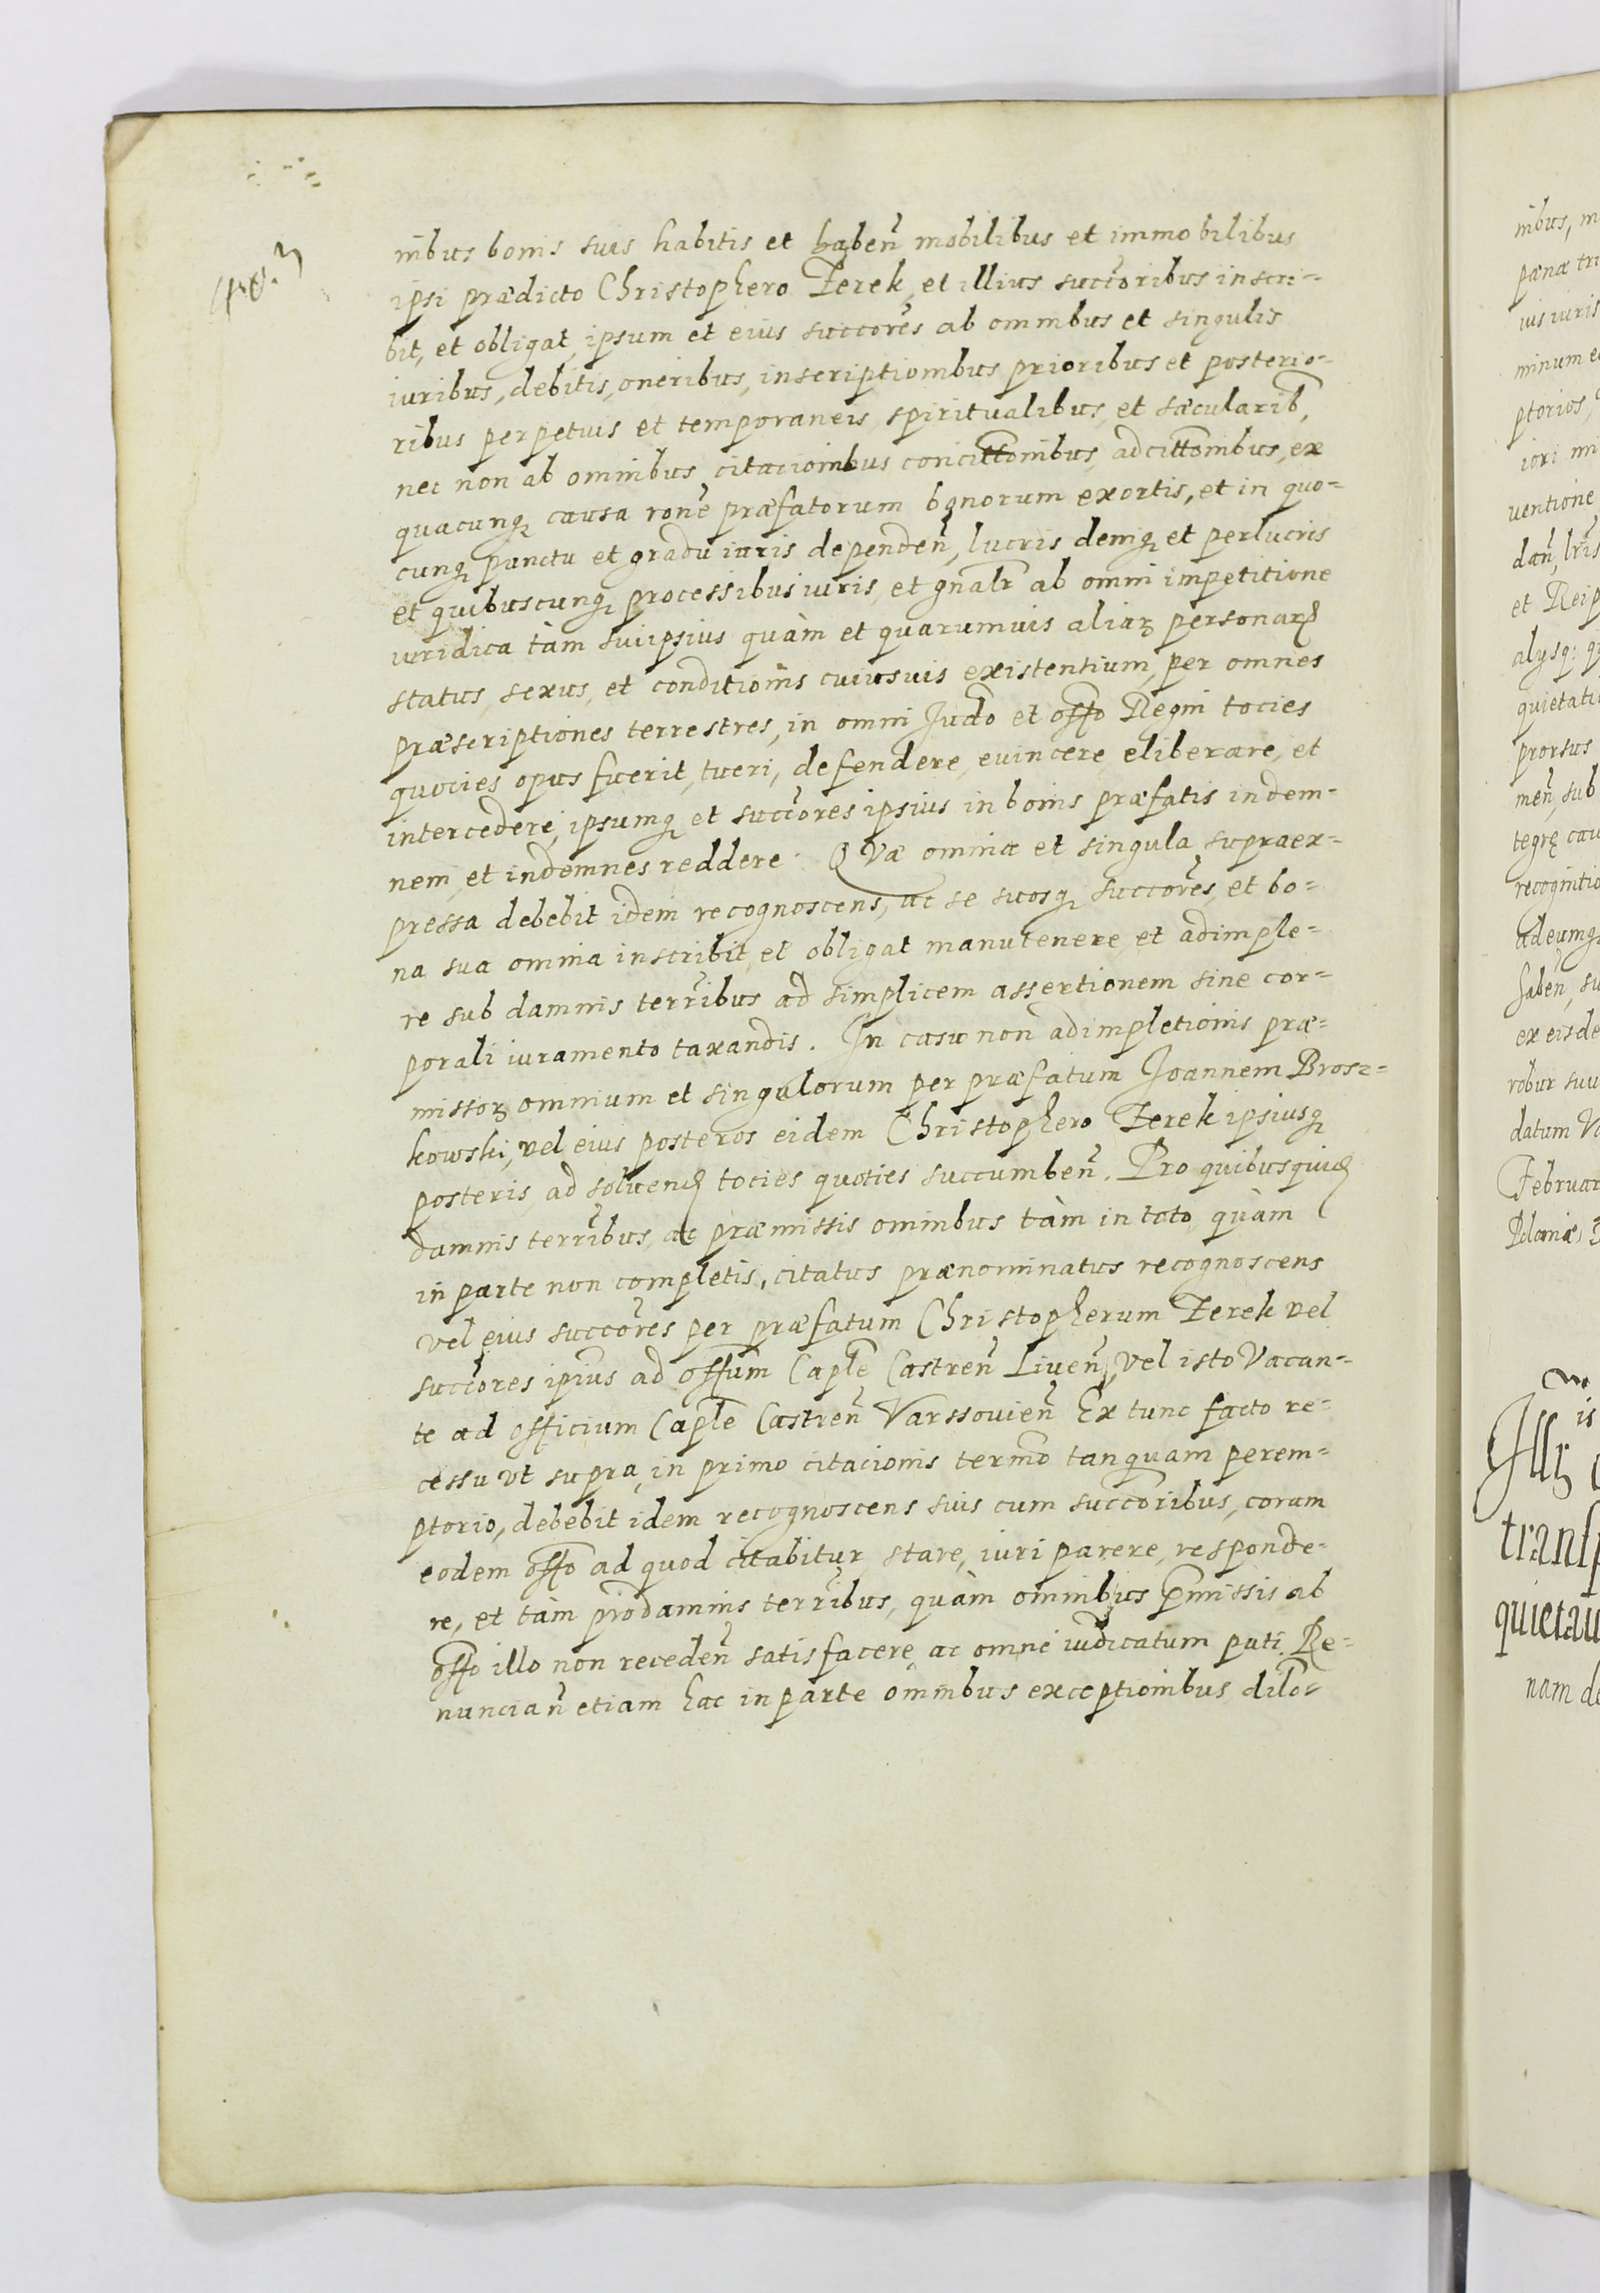 nibus bonis suis habitis et habeñ mobilibus et immobilibus
ipsi prædicto Christophero Zerek, et illius succoribus inscri-
bit, et obligat, ipsum et eius succores ab omnibus et singulis
iuribus, debitis, oneribus, inscriptionibus prioribus et posterio-
ribus perpetuis et temporaneis, spiritualibus, et sæcularib,
nec non ab omnibus citacionibus concittonibus, adcittonibus, ex
quacunq causa rone præfatorum bonorum exortis, et in quo-
cunq punctu et gradu iuris dependeñ, lucris deniq et perlucris
et quibuscunq processibus iuris, et gnalr ab omni impetitione
iuridica tàm suiipsius quàm et quarumuis aliarꝫ personarꝫ
status, sexus, et conditionis cuiusuis existentium, per omnes
præscriptiones terrestres, in omni Judo et offo Regni tocies
quocies opus fuerit, tueri, defendere, euincere, eliberare, et
intercedere, ipsumq et succores ipsius in bonis præfatis indem-
nem, et indemnes reddere. Quæ omnia et singula supraex-
pressa debebit idem recognoscens, ac se suosq succores, et bo-
na sua omnia inscribit, et obligat manutenere, et adimple-
re sub damnis terribus ad simplicem assertionem sine cor-
porali iuramento taxandis. In casu non adimpletionis præ-
missorꝫ omnium et singulorum per præfatum Joannem Brosz-
kowski, vel eius posteros eidem Christophero Zerek ipsiusq
posteris, ad soluend tocies quoties succumbeñ. Pro quibusquid
damnis terribus, ac præmissis omnibus tàm in toto, quàm
in parte non completis, citatus prænominatus recognoscens
vel eius succores per præfatum Christopherum Zerek vel
succores ipius ad offum Caple Castreñ Liueñ, vel isto vacan-
te ad officium Caple Castreñ Varssouieñ Ex tunc facto re-
cessu vt supra, in primo citacionis termo tanquam perem-
ptorio, debebit idem recognoscens suis cum succoribus, coram
eodem offo ad quod citabitur stare, iuri parere, responde-
re, et tàm pro damnis terribus, quàm omnibus pmissis ab
offo illo non recedeñ satisfacere, ac omne iudicatum pati. Re-
nunciañ etiam hac in parte omnibus exceptionibus dilo-
nibus, m
pænæ tri
ius iuris
minum e
ptorios,
iori mi
uentione
dañ, lris
et Reip
alysq: q
quietati
prorsus
meñ, sub
tegrę cau
recognitio
adeumq
habeñ, su
ex eisde
robur suu
datum Va
Februar
Poloniæ,
Illꝫ
transp
quietau
nam de